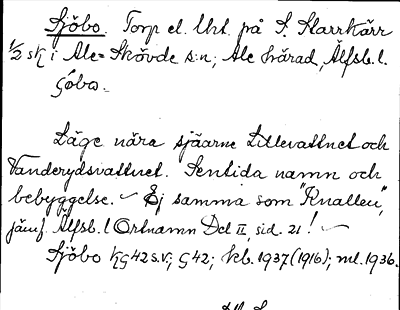 Sjöbo Torp el. Uht. på S. Starrkärr
1/2 sk i Ale-Skövde s:n, Ale härad, Älfsb. l.
Sjöbo.
Läge nära sjöarne Lillevattnet och
Vanderydsvattnet. Sentida namn och
bebyggelse. Ej samma som "Knallen",
jämf. Älfsb. l Ortnamn Del II, sid. 21!
Sjöbo KG42 s.v; G42; kb. 1937 (1916); ml. 1936.